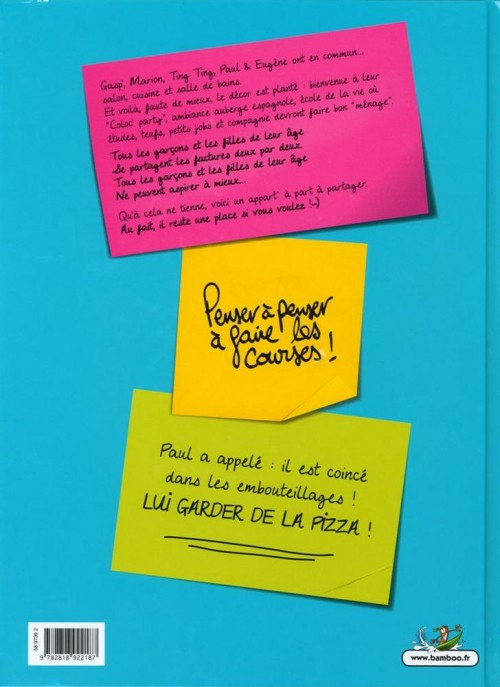 Gasp', Marion, Ting Ting, Paul & Eugène ont en commun...
salon, cuisine et salle de bains.
Et voilà, faute de mieux, le décor est planté : bienvenue à leur
"Coloc' party", ambiance auberge espagnole, école de la vie où
études, teufs, petits jobs et compagnie devront faire bon "ménage".
Tous les garçons et les filles de leur âge
Se partagent les factures deux par deux.
Tous les garçons et les filles de leur âge
Ne peuvent aspirer à mieux...
Qu'à cela ne tienne, voici un appart' à part à partager.
Au fait, il reste une place si vous voulez !...)
Penser à penser
à faire les
courses !
Paul a appelé : il est coincé
dans les embouteillages !
LUI GARDER DE LA PIZZA !
9 782818 922187
www.bamboo.fr